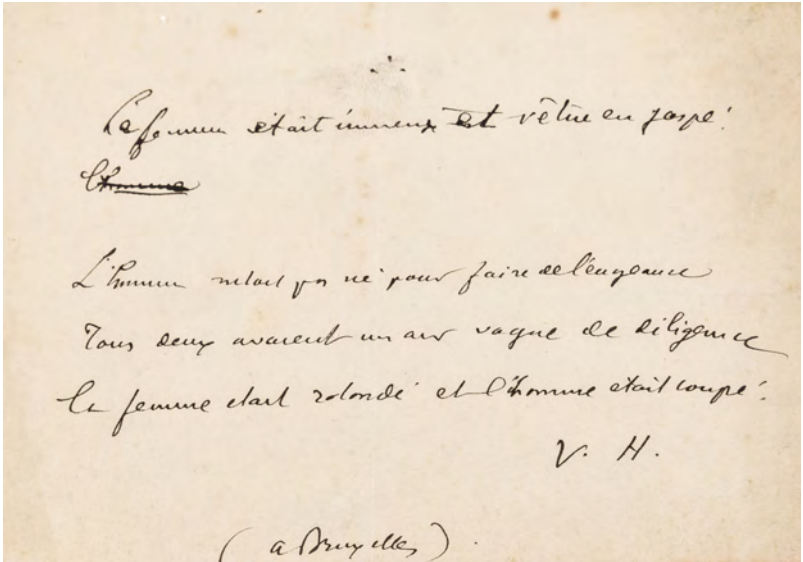 La femme était immense et vêtue en jaspé.
L'homme
L'homme n'était pas né pour faire de l'engeance
Tous deux avaient un air vague de diligence
La femme était rotonde et l'homme était coupé.
V. H.
(a Bruxelles).